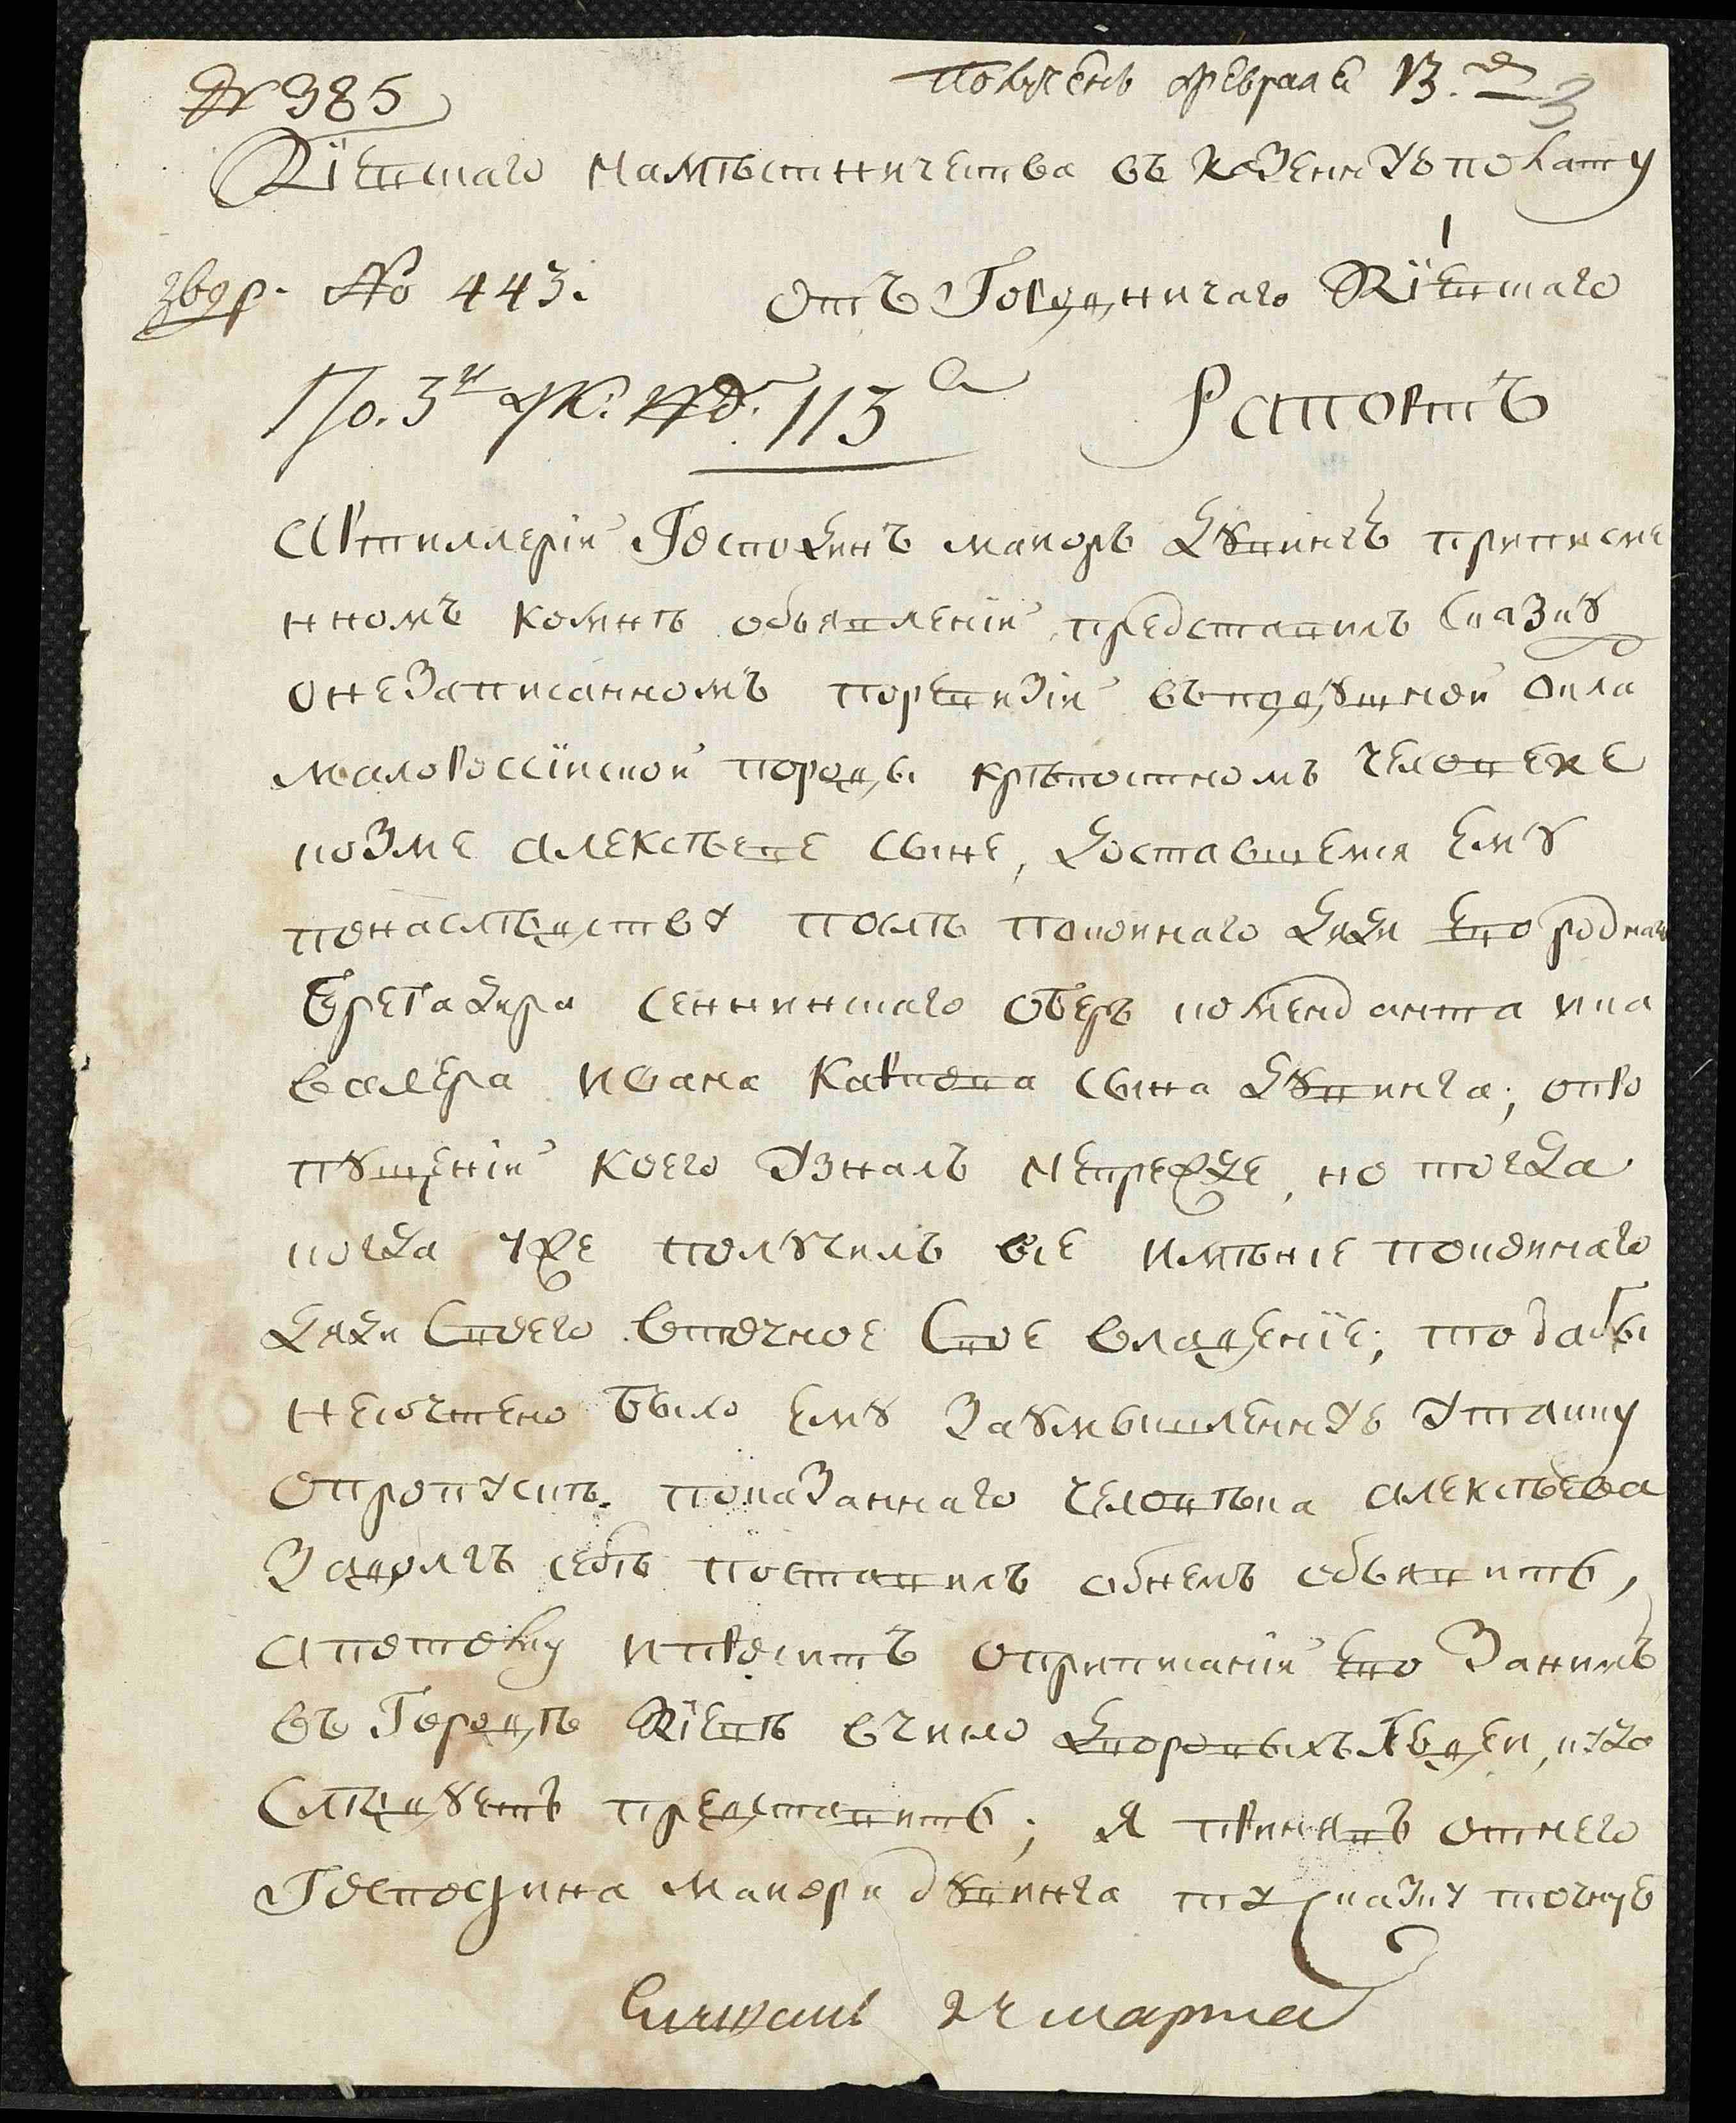 № 985
Полученъ февраля 13. д 3
Кіевскаго Намѣстничества въ Казенную полату
№ 443.
отъ Городничаго Кіевскаго
По. 3й эк. №. 113
Рапортъ
Артиллеріи Господинъ маиоръ Дѣвичъ приписме
нномъ комнѣ объявленіи представилъ Сказку
онезаписанномъ поревизіи въподушной окла
малоросс​ійской породы крѣпостномъ человеке
козме алексѣеве сыне, доставшемся ему
понаслѣдству послѣ покойнаго дяди ево роднаго
Брегадира Сеннинскаго Оберъ коменданта ика
валера ивана Карпова сына Дѣвича; опро
пущеніи коего узналъ непрежде, но тогда
когда уже получилъ все имѣніе покойнаго
дяди Своего вточное Свое владеніе; то дабы
несочтено было ему заумышленную утайку
опропускѣ показаннаго человѣка алексѣева
Задолгъ себѣ поставилъ обнемъ объявить,
а потому ипроситъ оприписаніи ево Занимъ
въ Городѣ Кіевѣ вчисло дворовыхъ людей, куда
Слѣдуетъ представить; я принявъ отнего
Господина маиора дѣвича ту сказку точную
24 марта